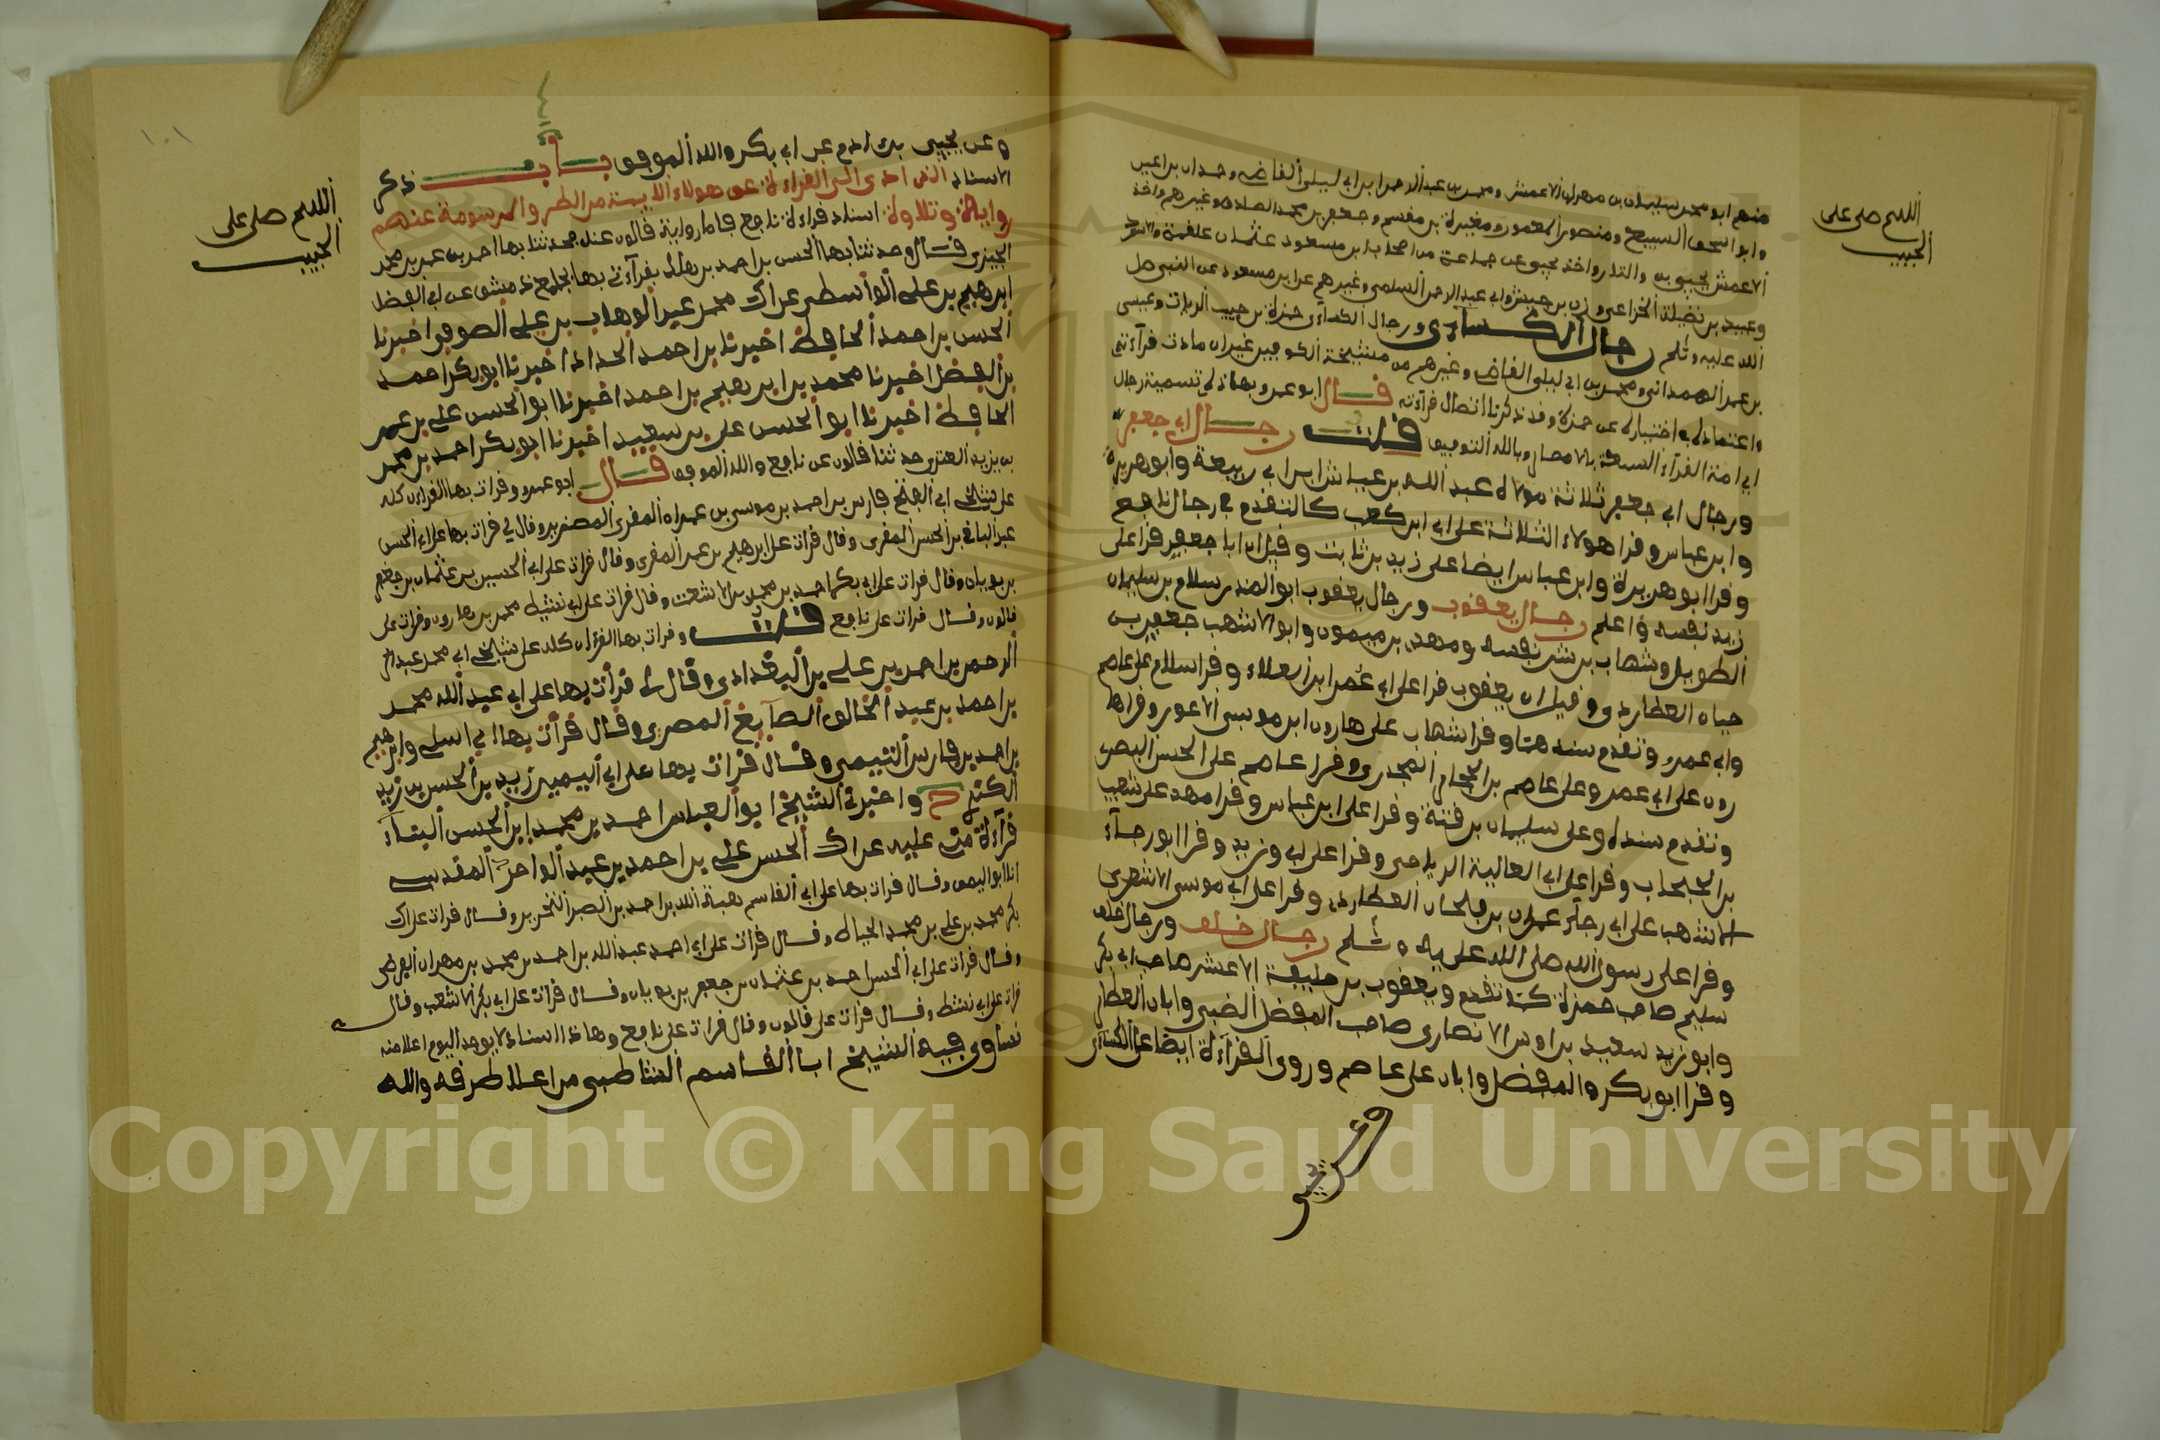 اللهم صل على
الحبيب
منهم ابو محمد سليمان بن مهران الاعمش ومحمد بن عبد الرحمن ابن ابي ليلى القاضي وحمران بن اعين
وابو اسحق السبيعي ومنصور بن المعمور ومغيرة بن مقسم وجعفر بن محمد الصادق وغيرهم واخذ
الاعمش يحيى بن وثاب واخذ يحيى عن جماعة من اصحاب ابن مسعود عثمان علقمة والاسود
وعبيد بن نضيلة الخزاعي وزر بن حبيش وابي عبد الرحمن السلمي وغيرهم عن ابن مسعود عن النبي صلى
الله عليه وسلم رجال الكسائي ورجال الكسائي حمزة بن حبيب الزيات وعيسى
بن عمر الهمداني ومحمد بن ابي ليلى القاضي وغيرهم من مشيخة الكوفيين غير ان مادة قراءته
واعتماده في اختياره عن حمزة وقد ذكرنا اتصال قراءته قال ابو عمرو فهذه تسمية رجال
ايمة القراء السبعة بالامصار وبالله التوفيق قلت رجال ابي جعفر
ورجال ابي جعفر ثلاثة مولاه عبد الله بن عياش ابن ابي ربيعة وابو هريرة
وابن عباس وقرا هولاء الثلاثة على ابي ابن كعب كما تقدم في رجال نافع
وقرا ابو هريرة وابن عباس ايضا على زيد بن ثابت وقيل ان ابا جعفر قرا على
زيد نفسه واعلم رجال يعقوب ورجال يعقوب ابو المنذر سلام بن سليمان
الطويل وشهاب بن شرنفسه ومهدي بن ميمون وابو الاشهب جعفر بن
حيان العطاردي وقيل ان يعقوب قرا على ابي عمرو ابن العلاء وقرا سلام على عاصم
وابي عمرو وتقدم سندهما وقرا شهاب على هارون ابن موسى الاعور وقرا ها
رون على ابي عمرو وعلى عاصم بن العجاج الجحدري وقرا عاصم على الحسن البصري
وتقدم سنده وعلى سليمان بن قتة وقرا على ابن عباس وقرا مهدي على شعيب
بن الحبحاب وقرا على ابي العالية الرياحي وقرا على ابي وزيد وقرا ابو رجاء
الاشهب على ابي رجاء عمران بن ملحان العطاردي وقرا على ابي موسى الاشعري
وقرا على رسول الله صلى الله عليه وسلم رجال خلف ورجال خلف
سليم صاحب حمزة كما تقدم ويعقوب بن خليفة الاعشى صاحب ابي بكر
وابو زيد سعيد بن اوس الانصاري صاحب المفضل الضبي وابان العطار
وقرا ابو بكر والمفضل وابان على عاصم وروى القراءة ايضا عن الكسائي
وعن يحيى
١٠١
اللهم صل على
الحبيب
وعن يحيى بن ادم عن ابي بكر والله الموفق باب ذكر
الاسناد الذي ادى الي القراءة عن هولاء الايمة من الطرق المرسومة عنهم
رواية وتلاوة اسناد قراءة نافع فاما رواية قالون عنه فحدثنا بها احمد بن عمر بن محمد
الجيزي قال وحدثنا بها الحسن بن احمد بن هلال بقراءتي بها بجامع دمشق عن ابي الفضل
ابرهيم بن علي الواسطي عن اك محمد عبد الوهاب بن علي الصوفي اخبرنا
الحسن بن احمد الحافظ اخبرنا بن احمد الحداد اخبرنا ابو بكر احمد
بن الفضل اخبرنا محمد بن ابرهيم بن احمد اخبرنا ابو الحسن علي بن عمر
الحافظ اخبرنا ابو الحسن علي بن سعيد اخبرنا ابو بكر احمد بن محمد
بن يزيد العنزي حدثنا قالون عن نافع والله الموفق قال ابو عمرو وقرات بها القرءان كله
على شيخي ابي الفتح فارس بن احمد بن موسى بن عمران المقري الضرير وقال لي قرات بها على ابي الحسن
عبد الباقي بن الحسن المقري وقال قرات على ابرهيم بن عمر المقري وقال قرات على ابي الحسين بن عثمان بن جعفر
بن بويان وقال قرات على ابي بكر احمد بن محمد بن الاشعث وقال قرات على ابي نشيط محمد بن هارون وقرات على
قالون وقال قرات على نافع قلت وقرات بها القرءان كله على شيخي ابي محمد عبد
الرحمن بن احمد بن علي بن البغدادي وقال لي قرأت بها على ابي عبد الله محمد
بن احمد بن عبد الخالق الصايغ المصري وقال قرأت بها
بن احمد بن فارس التميمي وقال قرات بها على ابي اليمن زيد بن الحسن بن زيد
الكندي ح واخبرني الشيخ ابو العباس احمد بن محمد ابن الحسن البناء
قرأءة مني عليه عن اك الحسن علي بن احمد بن عبد الواحد المقدسي
انا ابو اليمن وقال قرات بها على ابي القاسم هبة الله بن احمد بن الضر الحرير وقال قرات على اك
بكر محمد بن علي بن محمد الخياط وقال قرات على ابي احمد عبد الله بن احمد بن محمد بن مهران الفرضي
وقال قرات على ابي الحسن احمد بن عثمان بن جعفر بن بويان وقال قرات على ابي بكر الاشعث وقال
قرات على ابي نشيط وقال قرات على قالون وقال قرات على نافع وهاذا اسناد لا يوجد اليوم اعلا منه
نساوي فيه الشيخ ابا القاسم الشاطبي من اعلا طرقه والله
Copyright © King Saud University